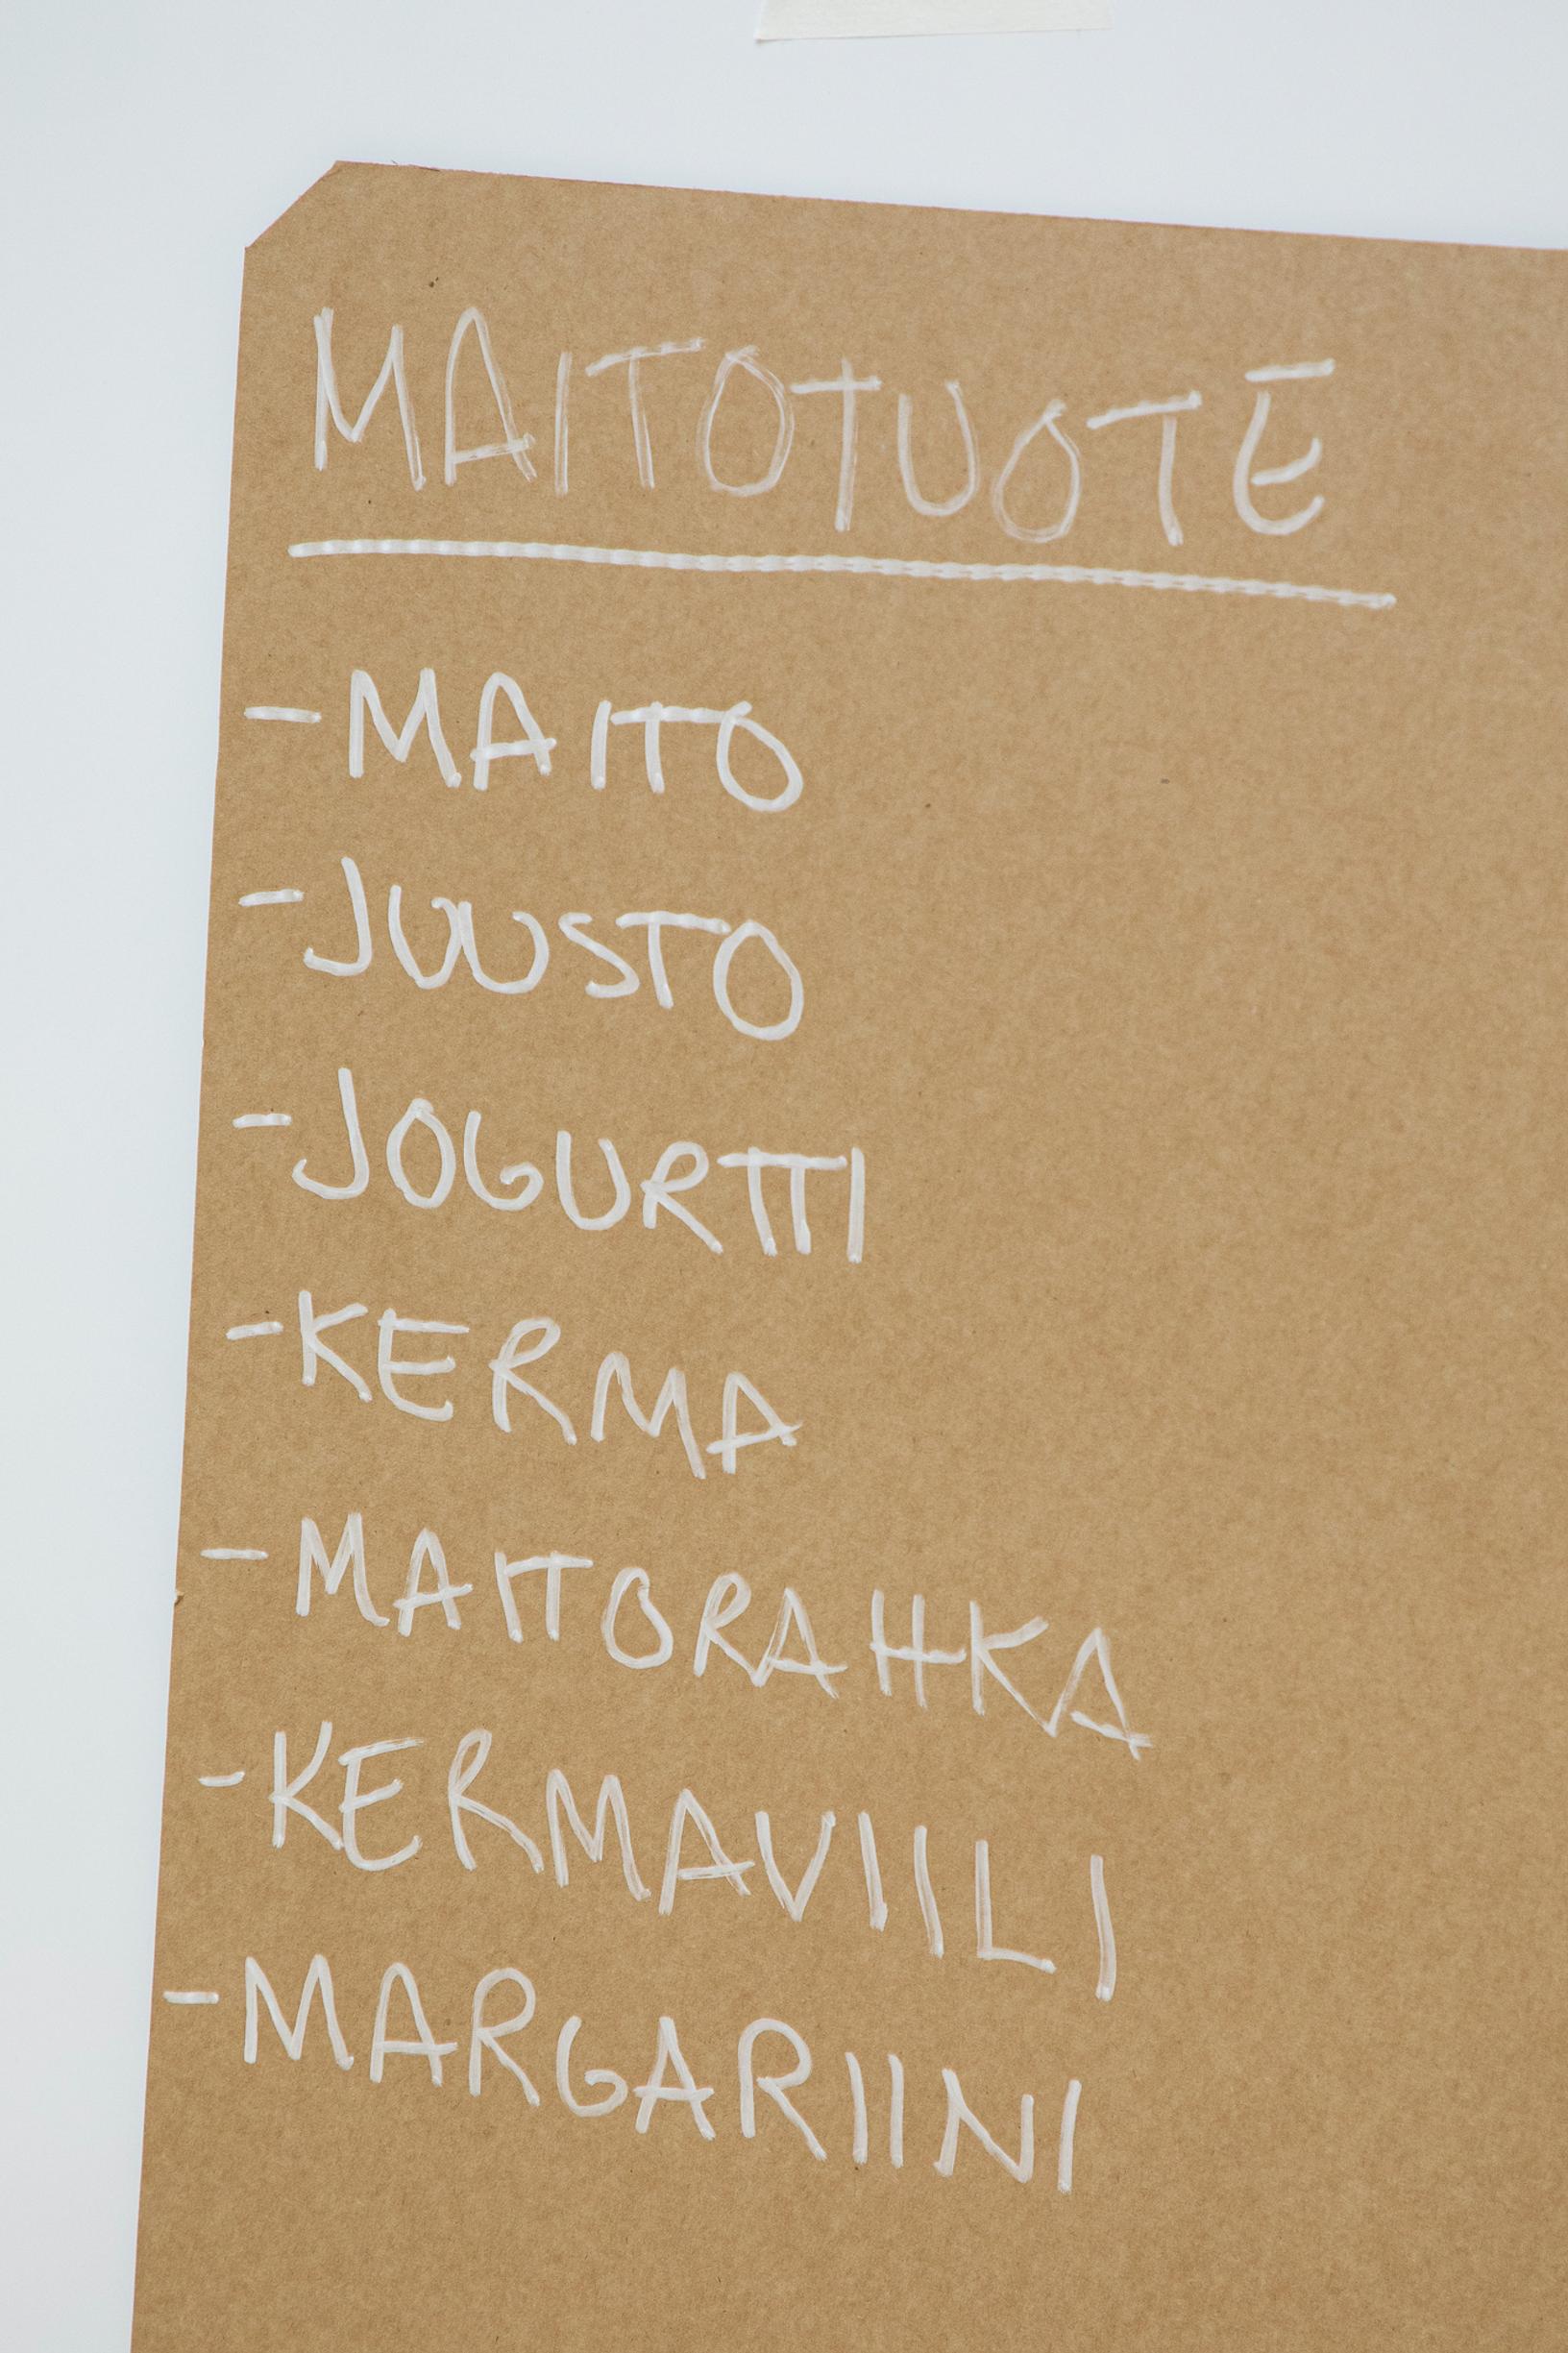 MAITOTUOTE
- MAITO
- JUUSTO
- JOGURTTI
- KERMA
- MAITORAHKA
- KERMAVIILI
- MARGARIINI